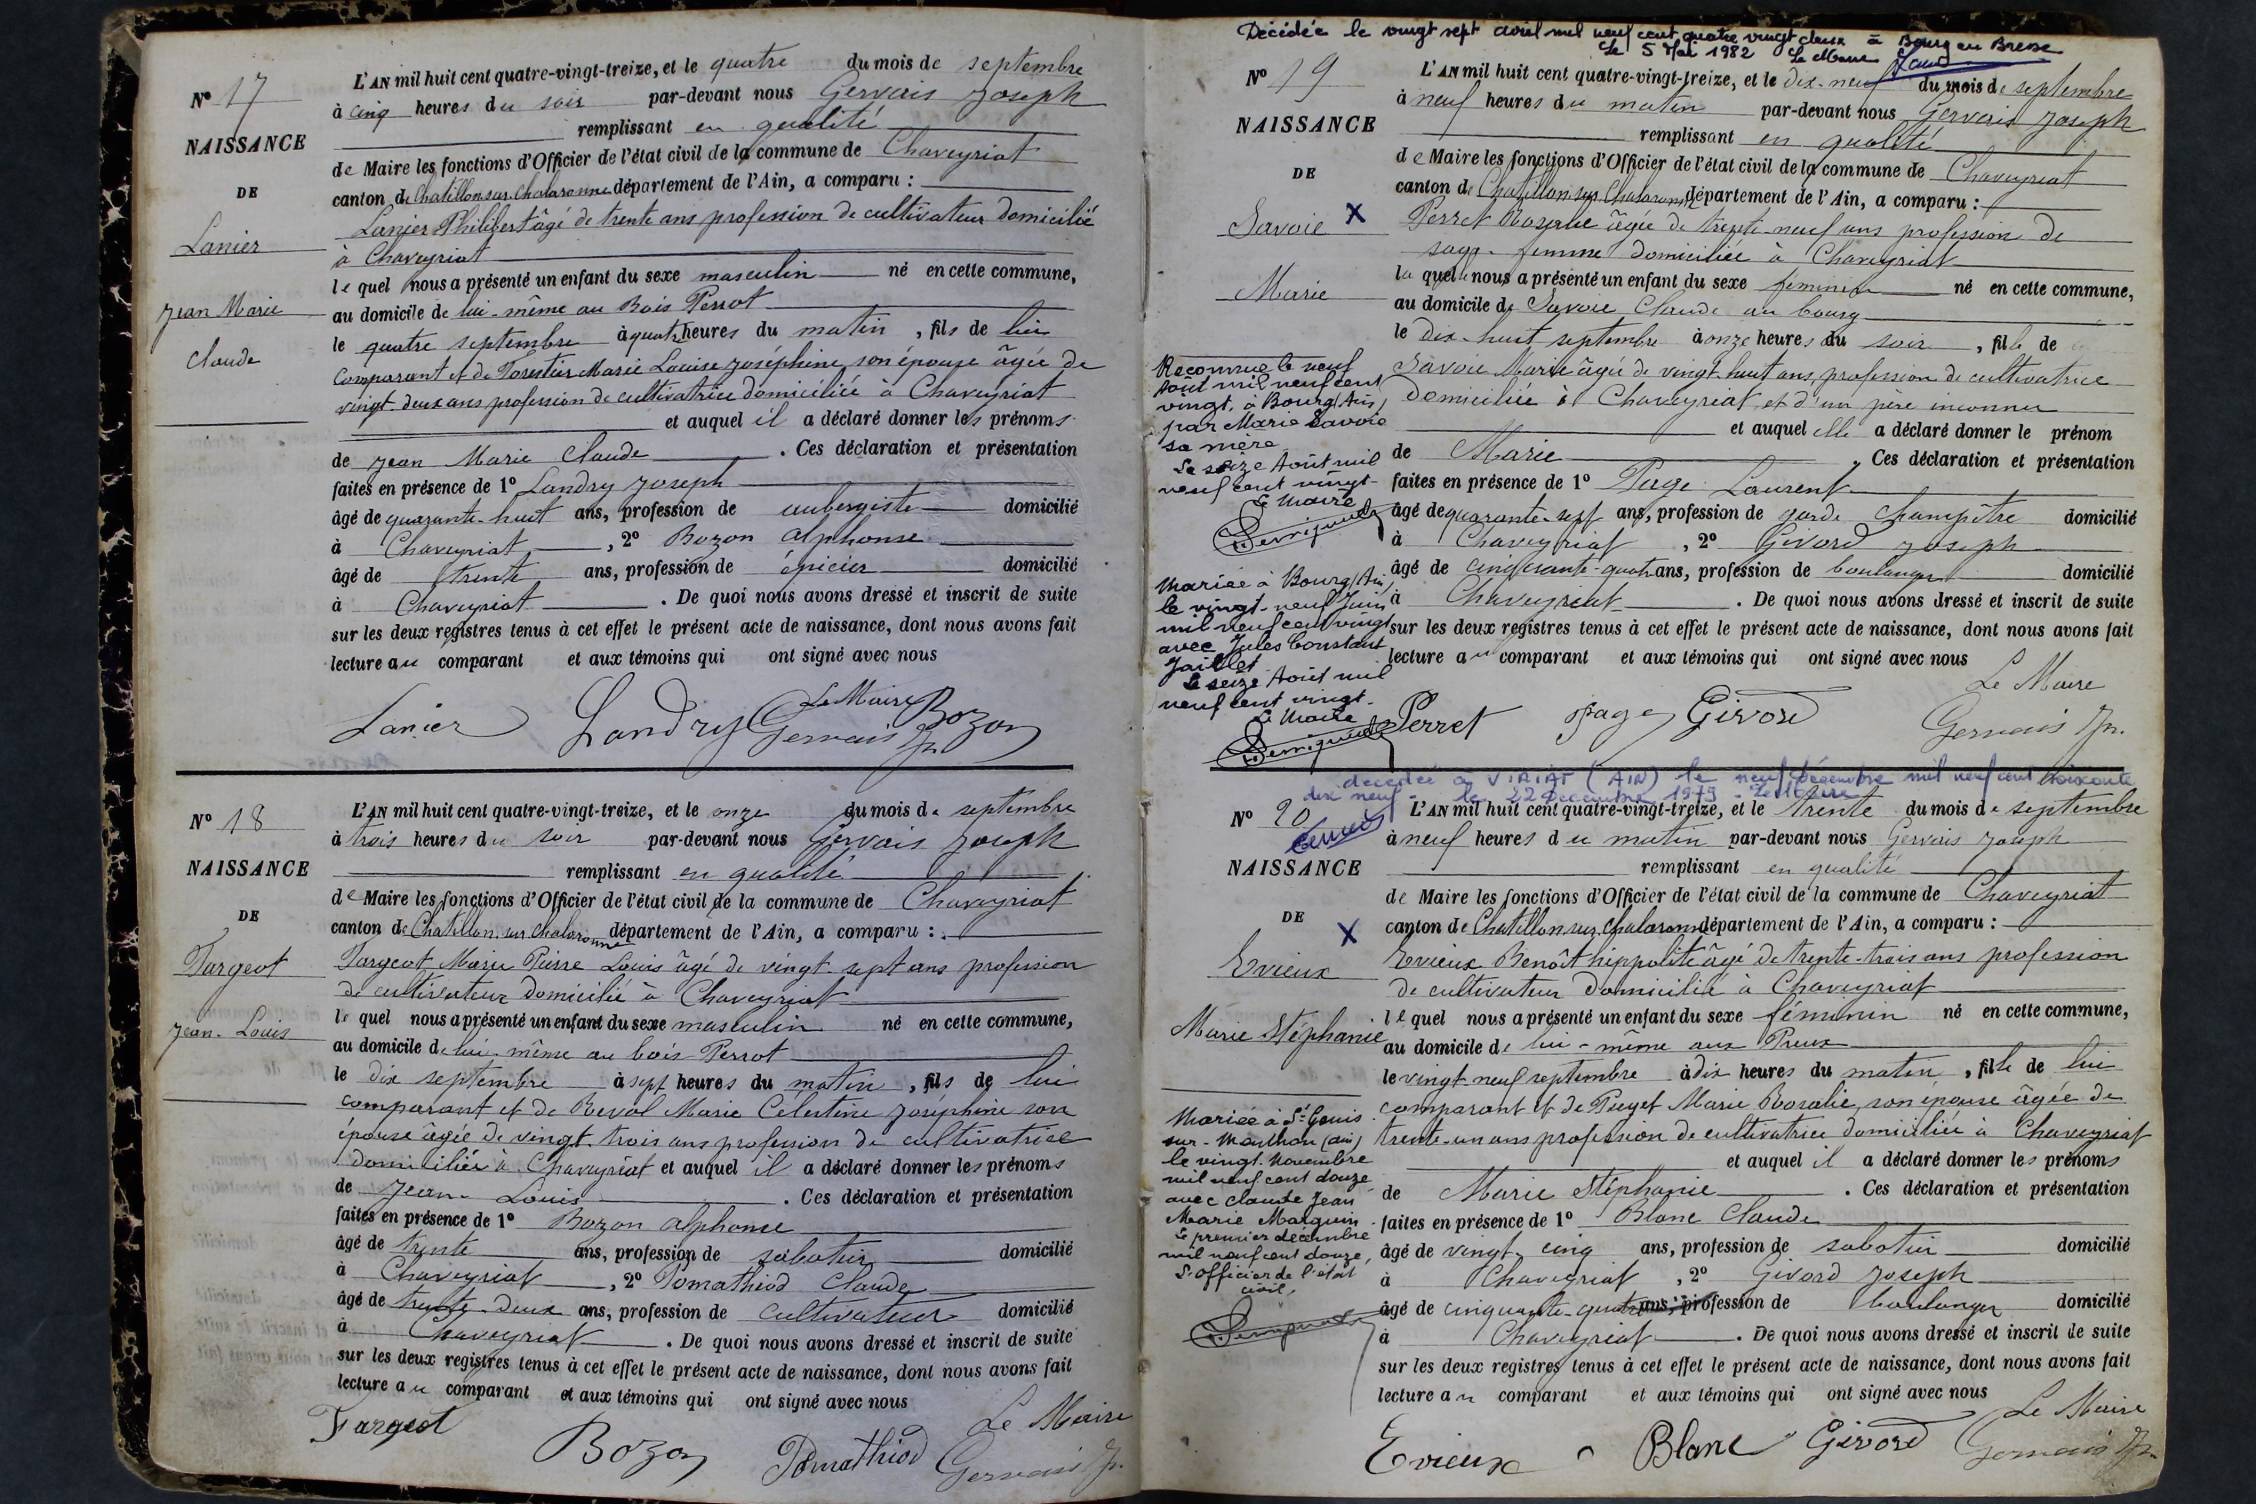 N° 17
NAISSANCE
DE
Lanier
Jean Marie
Claude
L'AN mil huit cent quatre-vingt-treize, et le quatre du mois de septembre
à cinq heures du soir par-devant nous Gervais Joseph
remplissant en qualité
de Maire les fonctions d'Officier de l'état civil de la commune de Chaveyriat
canton de Chatillon sur Chalaronne département de l'Ain, a comparu :
Lanier Philibert âgé de trente ans profession de cultivateur domicilié
à Chaveyriat
le quel nous a présenté un enfant du sexe masculin né en cette commune,
au domicile de lui-même au Bois Perrot
le quatre septembre à quatre heures du matin, fils de lui
comparant et de Forestier Marie Louise Joséphine, son épouse âgée de
vingt-deux ans profession de cultivatrice domiciliée à Chaveyriat
et auquel il a déclaré donner les prénoms
de Jean Marie Claude. Ces déclaration et présentation
faites en présence de 1° Landry Joseph
âgé de quarante-huit ans, profession de aubergiste domicilié
à Chaveyriat, 2° Bozon Alphonse
âgé de trente ans, profession de épicier domicilié
à Chaveyriat. De quoi nous avons dressé et inscrit de suite
sur les deux registres tenus à cet effet le présent acte de naissance, dont nous avons fait
lecture au comparant et aux témoins qui ont signé avec nous
Le Maire
Lanier Landry Gervais Jh. Bozon
N° 18
NAISSANCE
DE
Fargeot
Jean-Louis
L'AN mil huit cent quatre-vingt-treize, et le onze du mois de septembre
à trois heures du soir par-devant nous Gervais Joseph
remplissant en qualité
de Maire les fonctions d'Officier de l'état civil de la commune de Chaveyriat
canton de Chatillon sur Chalaronne département de l'Ain, a comparu :
Fargeot Marie Pierre Louis âgé de vingt-sept ans profession
de cultivateur domicilié à Chaveyriat
le quel nous a présenté un enfant du sexe masculin né en cette commune,
au domicile de lui-même au bois Perrot
le dix septembre à sept heures du matin, fils de lui
comparant et de Beval Marie Célestine Joséphine son
épouse âgée de vingt-trois ans profession de cultivatrice
domiciliée à Chaveyriat et auquel il a déclaré donner les prénoms
de Jean Louis. Ces déclaration et présentation
faites en présence de 1° Bozon Alphonse
âgé de trente ans, profession de sabotier domicilié
à Chaveyriat, 2° Pomathiod Claude
âgé de trente-deux ans, profession de cultivateur domicilié
à Chaveyriat. De quoi nous avons dressé et inscrit de suite
sur les deux registres tenus à cet effet le présent acte de naissance, dont nous avons fait
lecture au comparant et aux témoins qui ont signé avec nous
Le Maire
Fargeot Bozon Pomathiod Gervais Jh.
Décédée le vingt sept avril mil neuf cent quatre vingt deux à Bourg en Bresse
Le 5 Mai 1982 Le Maire
N° 19
NAISSANCE
DE
Savoie X
Marie
Reconnue le neuf
août mil neuf cent
vingt, à Bourg (Ain)
par Marie Savoie
sa mère
Le seize Août mil
neuf cent vingt-
Le Maire
Mariée à Bourg (Ain)
le vingt-neuf Juin
mil neuf cent vingt
avec Jules Constant
Jaillet
Le seize Août mil
neuf cent vingt-
Le Maire
L'AN mil huit cent quatre-vingt-treize, et le dix-neuf du mois de septembre
à neuf heures du matin par-devant nous Gervais Joseph
remplissant en qualité
de Maire les fonctions d'Officier de l'état civil de la commune de Chaveyriat
canton de Chatillon sur Chalaronne département de l'Ain, a comparu :
Perret Rosalie âgée de trente-neuf ans profession de
sage-femme domiciliée à Chaveyriat
la quelle nous a présenté un enfant du sexe féminin né en cette commune,
au domicile de Savoie Claude au bourg
le dix-huit septembre à onze heures du soir, fille de
Savoie Marie âgée de vingt-huit ans, profession de cultivatrice
domiciliée à Chaveyriat, et d'un père inconnu
et auquel elle a déclaré donner le prénom
de Marie. Ces déclaration et présentation
faites en présence de 1° Page Laurent
âgé de quarante-sept ans, profession de garde champêtre domicilié
à Chaveyriat, 2° Givord Joseph
âgé de cinquante-quatre ans, profession de boulanger domicilié
à Chaveyriat. De quoi nous avons dressé et inscrit de suite
sur les deux registres tenus à cet effet le présent acte de naissance, dont nous avons fait
lecture au comparant et aux témoins qui ont signé avec nous
Le Maire
Perret Page Givord Gervais Jh.
décédée à VIRIAT (AIN) le neuf Décembre mil neuf cent soixante
dix neuf - le 22 Décembre 1979 - Le Maire
N° 20
NAISSANCE
DE
X
Evieux
Marie Stéphanie
Mariée à St Genis
sur-Menthon (ain)
le vingt Novembre
mil neuf cent douze
avec Claude Jean
Marie Marguin
Le premier décembre
mil neuf cent douze,
L'officier de l'état
civil,
L'AN mil huit cent quatre-vingt-treize, et le trente du mois de septembre
à neuf heures du matin par-devant nous Gervais Joseph
remplissant en qualité
de Maire les fonctions d'Officier de l'état civil de la commune de Chaveyriat
canton de Chatillon sur Chalaronne département de l'Ain, a comparu :
Evieux Benoît hippolite âgé de trente-trois ans profession
de cultivateur domicilié à Chaveyriat
le quel nous a présenté un enfant du sexe féminin né en cette commune,
au domicile de lui-même aux Preux
le vingt-neuf septembre à dix heures du matin, fille de lui
comparant et de Puget Marie Rosalie, son épouse âgée de
trente-un ans profession de cultivatrice domiciliée à Chaveyriat
et auquel il a déclaré donner les prénoms
de Marie Stéphanie. Ces déclaration et présentation
faites en présence de 1° Blanc Claude
âgé de vingt-cinq ans, profession de sabotier domicilié
à Chaveyriat, 2° Givord Joseph
âgé de cinquante-quatre ans, profession de boulanger domicilié
à Chaveyriat. De quoi nous avons dressé et inscrit de suite
sur les deux registres tenus à cet effet le présent acte de naissance, dont nous avons fait
lecture au comparant et aux témoins qui ont signé avec nous
Le Maire
Evieux Blanc Givord Gervais Jh.